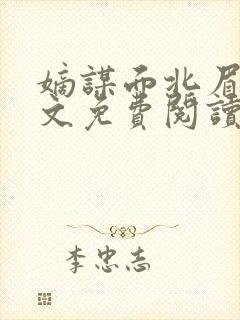 嫡謀而北眉
文免費閱讀
李忠志